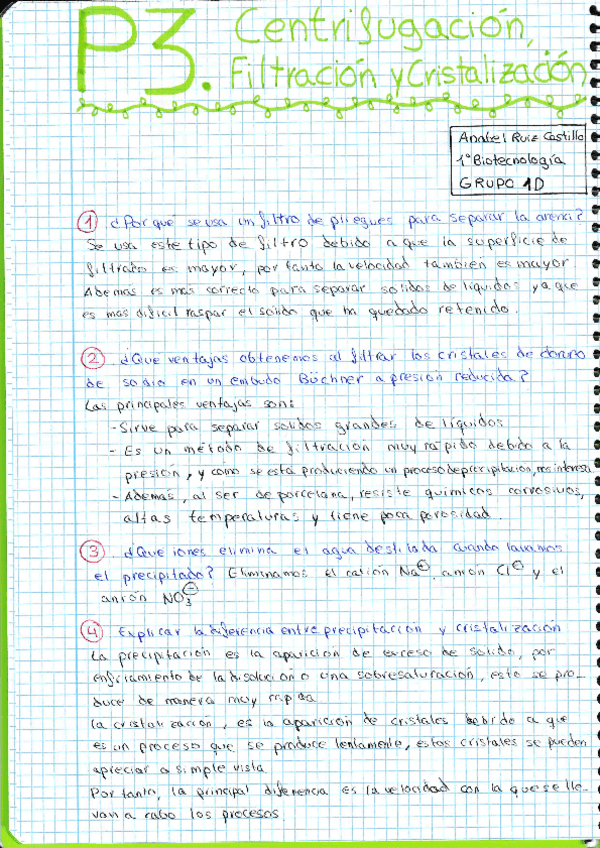 P3. Centrifugación,
Filtración y Cristalización
Anabel Ruiz Castillo
1º Biotecnología
GRUPO 1D
1 ¿Por qué se usa un filtro de pliegues para separar la arena?
Se usa este tipo de filtro debido a que la superficie de
filtrado es mayor, por tanto la velocidad también es mayor
Además es más correcto para separar sólidos de líquidos ya que
es más difícil raspar el sólido que ha quedado retenido.
2 ¿Qué ventajas obtenemos al filtrar los cristales de cloruro
de sodio en un embudo Büchner a presión reducida?
Las principales ventajas son:
- Sirve para separar sólidos grandes de líquidos
- Es un método de filtración muy rápido debido a la
presión, y como se está produciendo un proceso de precipitación, nos interesa
- Además, al ser de porcelana, resiste químicos corrosivos,
altas temperaturas y tiene poca porosidad.
3 ¿Qué iones elimina el agua destilada cuando lavamos
el precipitado? Eliminamos el catión Na⊕, anión Cl⊖ y el
anión NO₃⊖
4 Explicar la diferencia entre precipitación y cristalización
La precipitación es la aparición de exceso de sólido, por
enfriamiento de la disolución o una sobresaturación, esto se pro-
duce de manera muy rápida
La cristalización, es la aparición de cristales debido a que
es un proceso que se produce lentamente, estos cristales se pueden
apreciar a simple vista
Por tanto, la principal diferencia es la velocidad con la que se lle-
van a cabo los procesos.